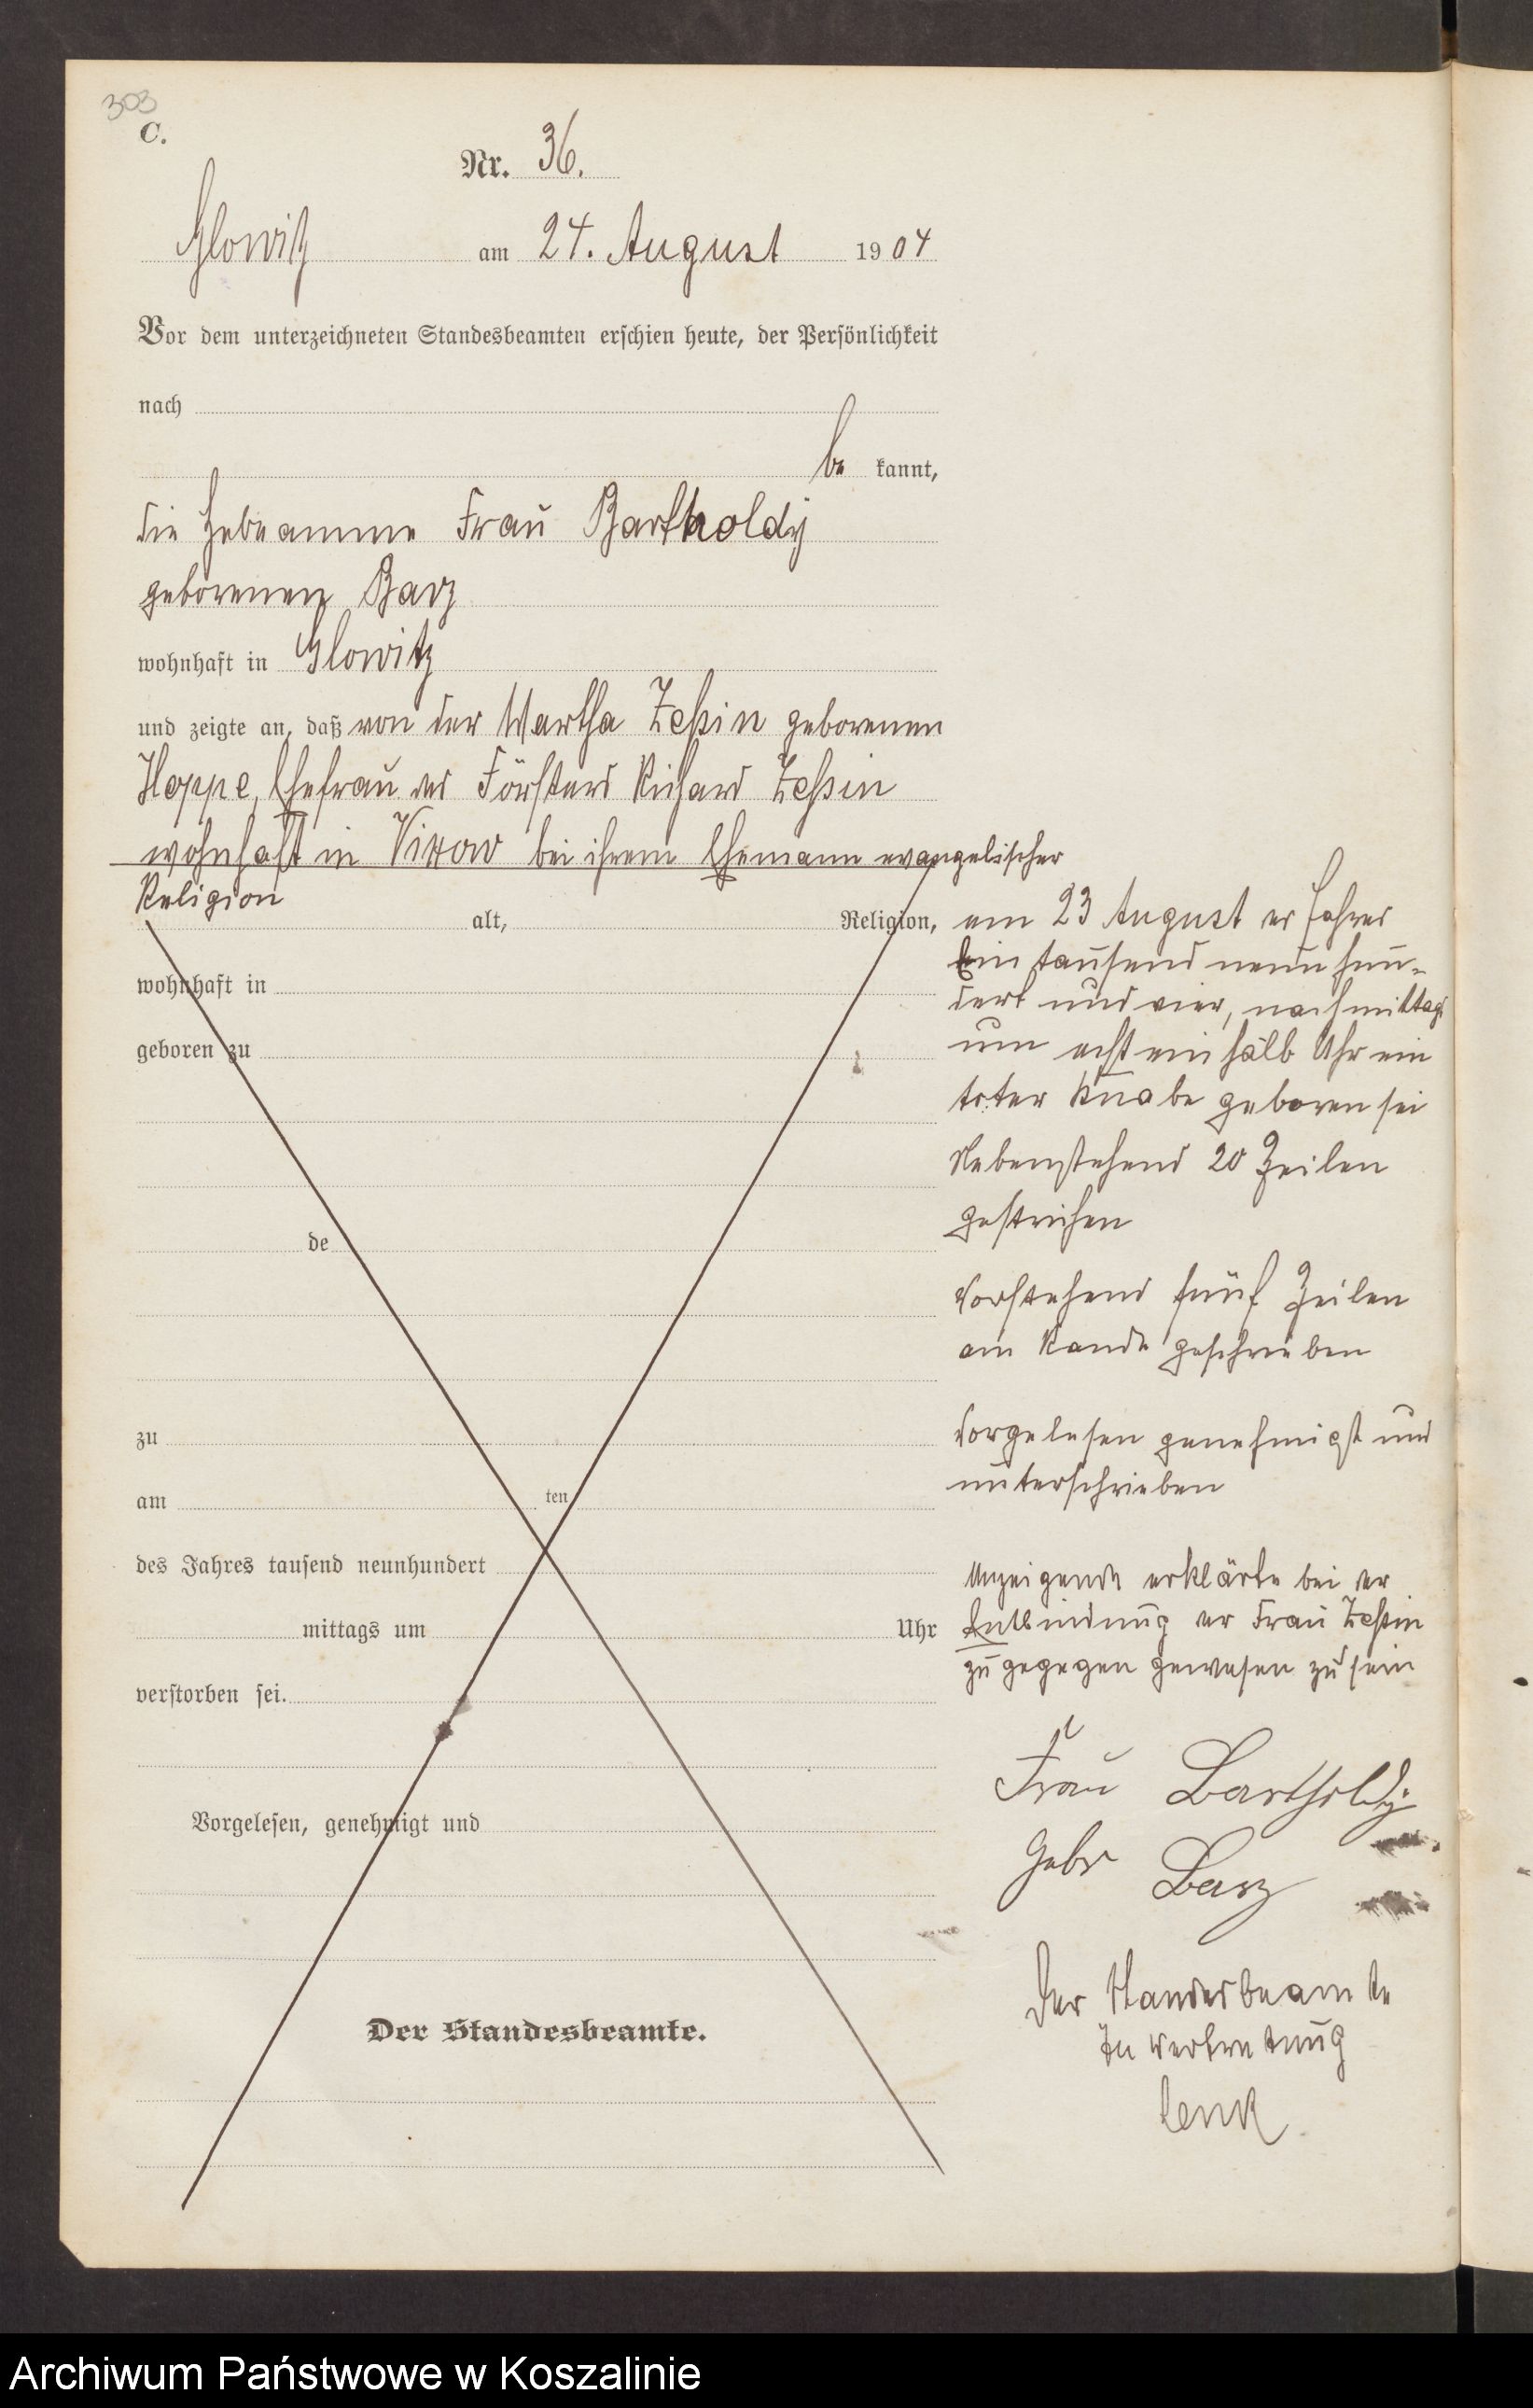 303
C.
Nr. 36.
Glowitz am 24. August 1904
Vor dem unterzeichneten Standesbeamten erschien heute, der Persönlichkeit
nach
be kannt,
die Hebeamme Frau Bartholdy
geborenen Barz
wohnhaft in Glowitz
und zeigte an, daß von der Martha Zessin geborenen
Hoppe, Ehefrau des Försters Richard Zessin
wohnhaft in Vixow bei ihrem Ehemann evangelischer
Religion
alt, Religion,
wohnhaft in
geboren zu
de
zu
am ten
des Jahres tausend neunhundert
mittags um Uhr
verstorben sei.
Vorgelesen, genehmigt und
Der Standesbeamte.
am 23 August des Jahres
Eintausend neun hun-
dert und vier, nachmittags
um acht ein halb Uhr ein
toter Knabe geboren sei
Nebenstehend 20 Zeilen
gestrichen
Vorstehend fünf Zeilen
am Rande geschrieben
Vorgelesen genehmigt und
unterschrieben
Anzeigende erklärte bei der
Entbindung der Frau Zessin
zugegegen gewesen zu sein
Frau Bartholdy
Gebr Barz
Der Standesbeamte
In Vertretung
Lenk
Archiwum Państwowe w Koszalinie